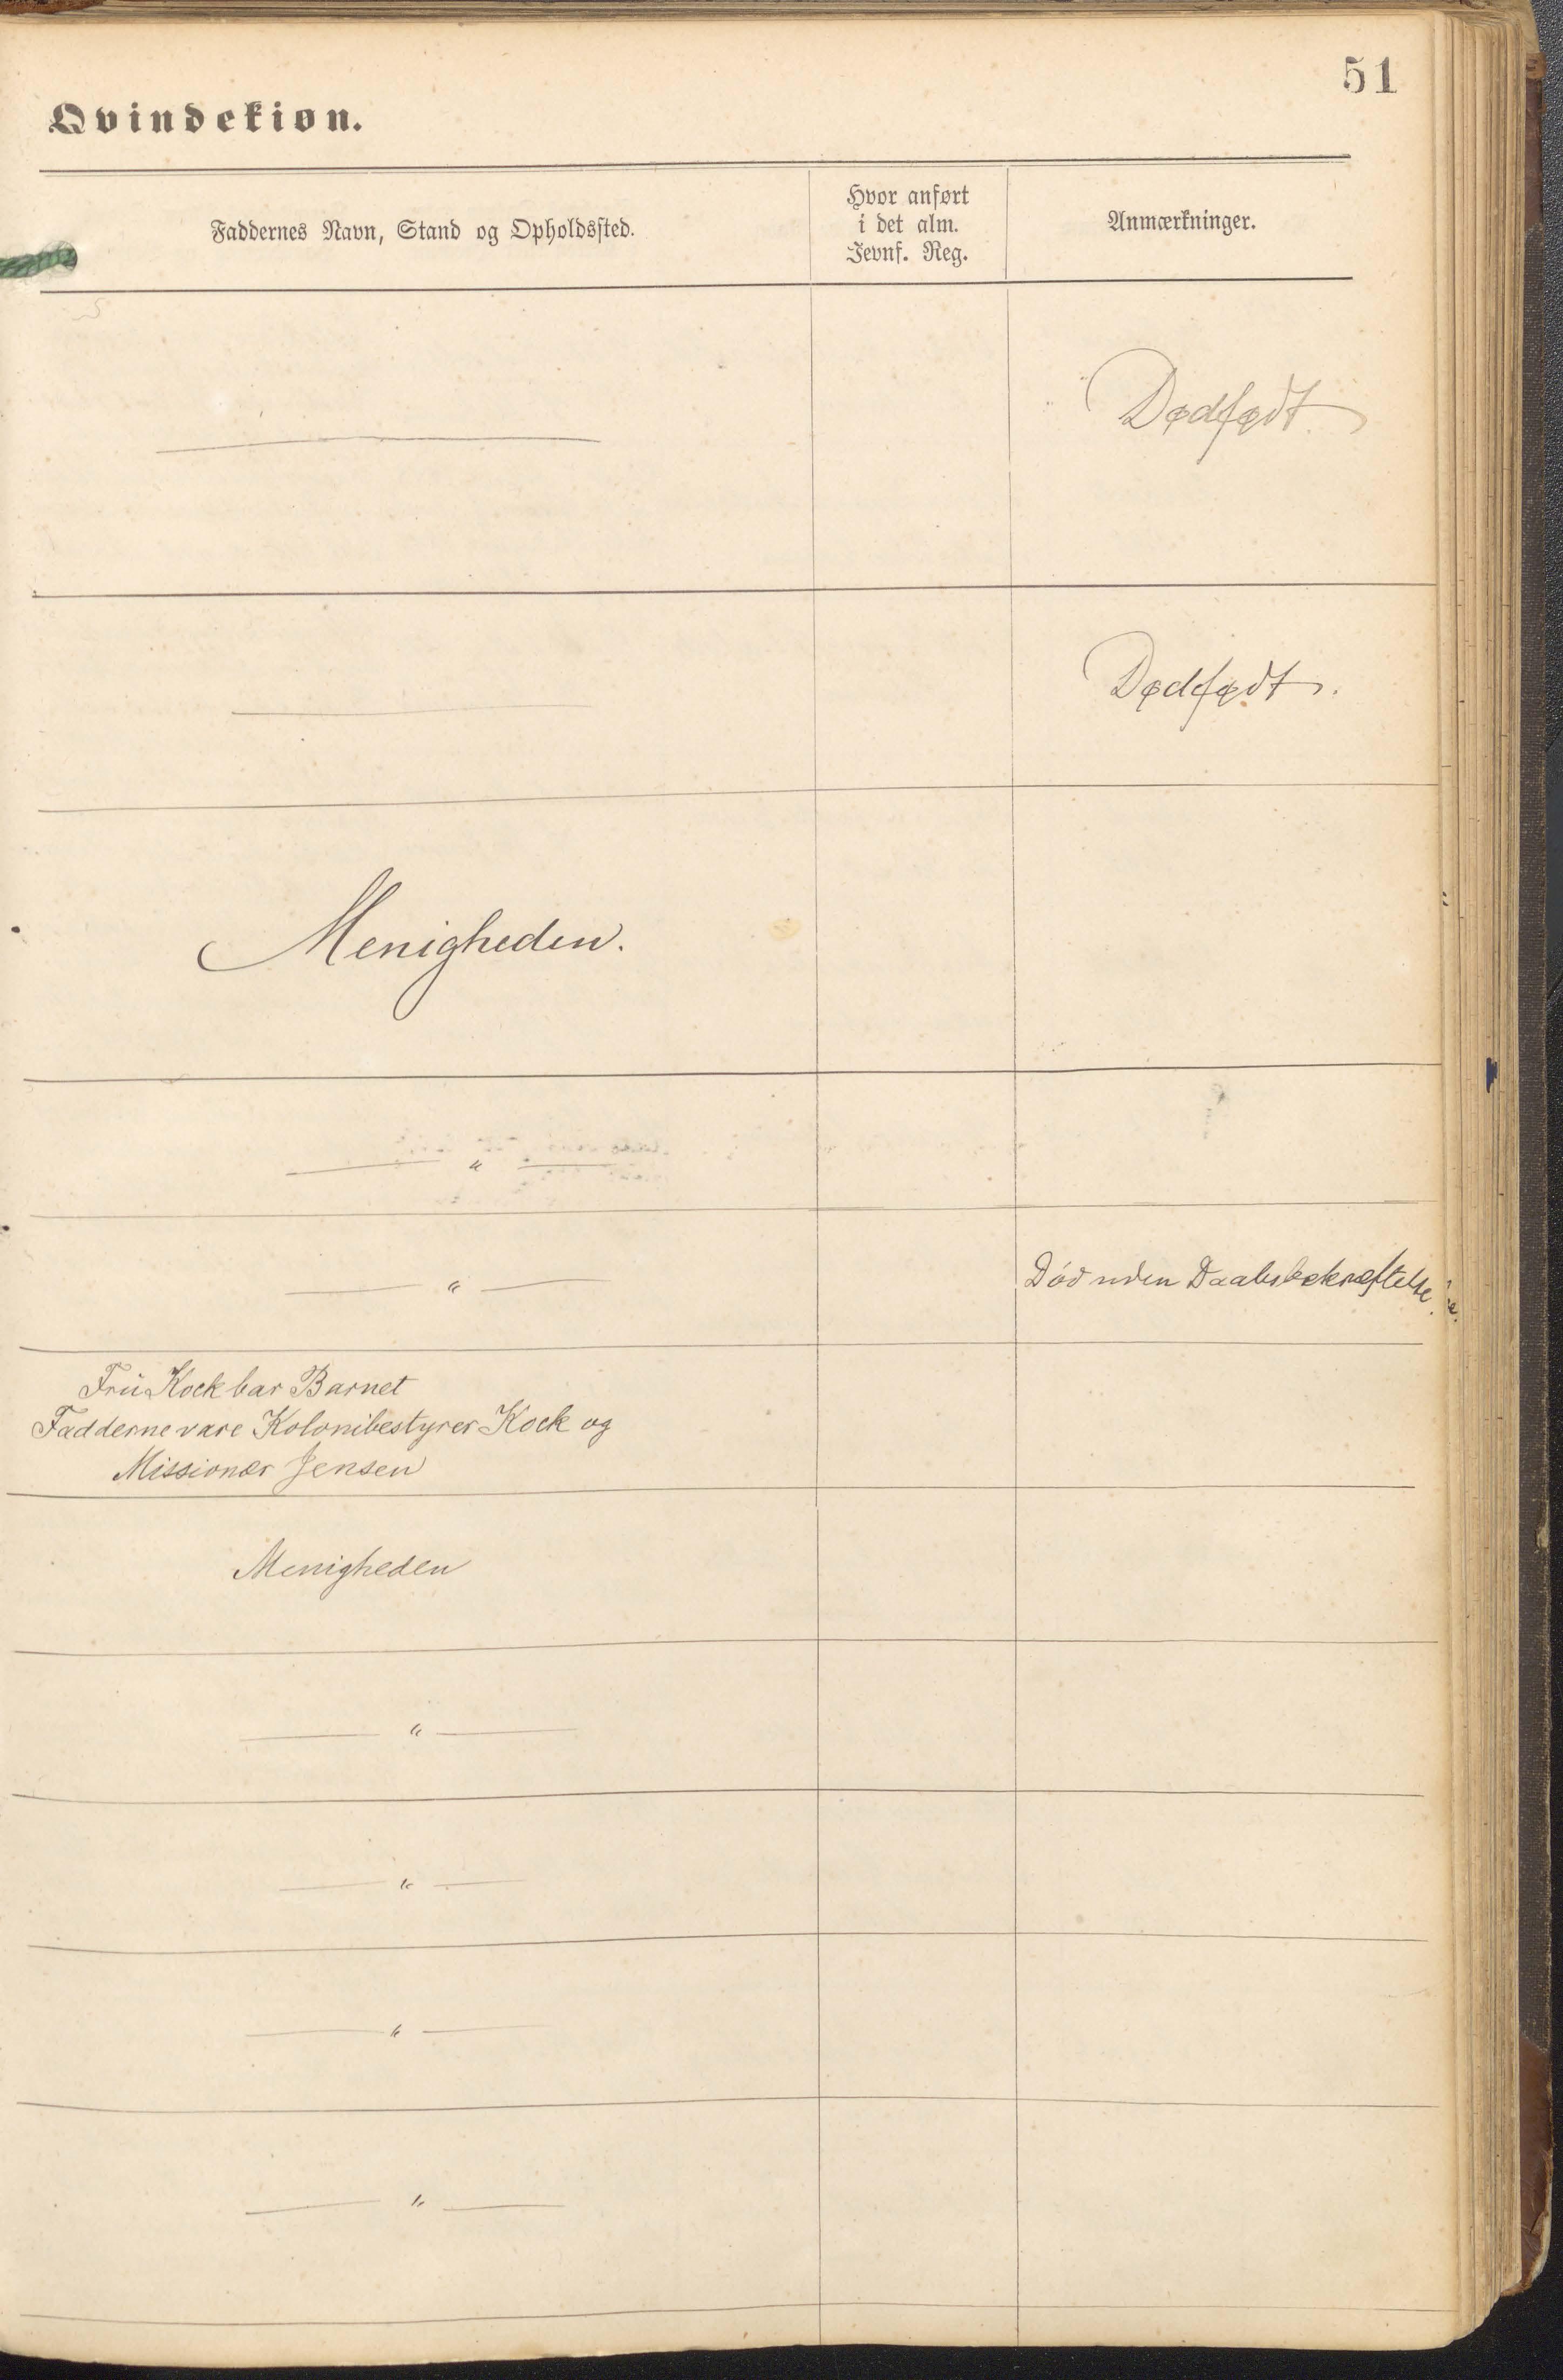 51
Qvindekiøn.
Faddernes Navn, Stand og Opholdssted.
Hvor anført
i det alm.
Jevnf. Reg.
Anmærkninger.
Dødfødt.
Dødfødt.
Menigheden.
— " —
— " —
Död uden Daabsbekræftelse.
Frü Kock bar Barnet
Fadderne vare Kolonibestyrer Kock og
Missionær Jensen
Menigheden
— " —
— " —
— " —
— " —